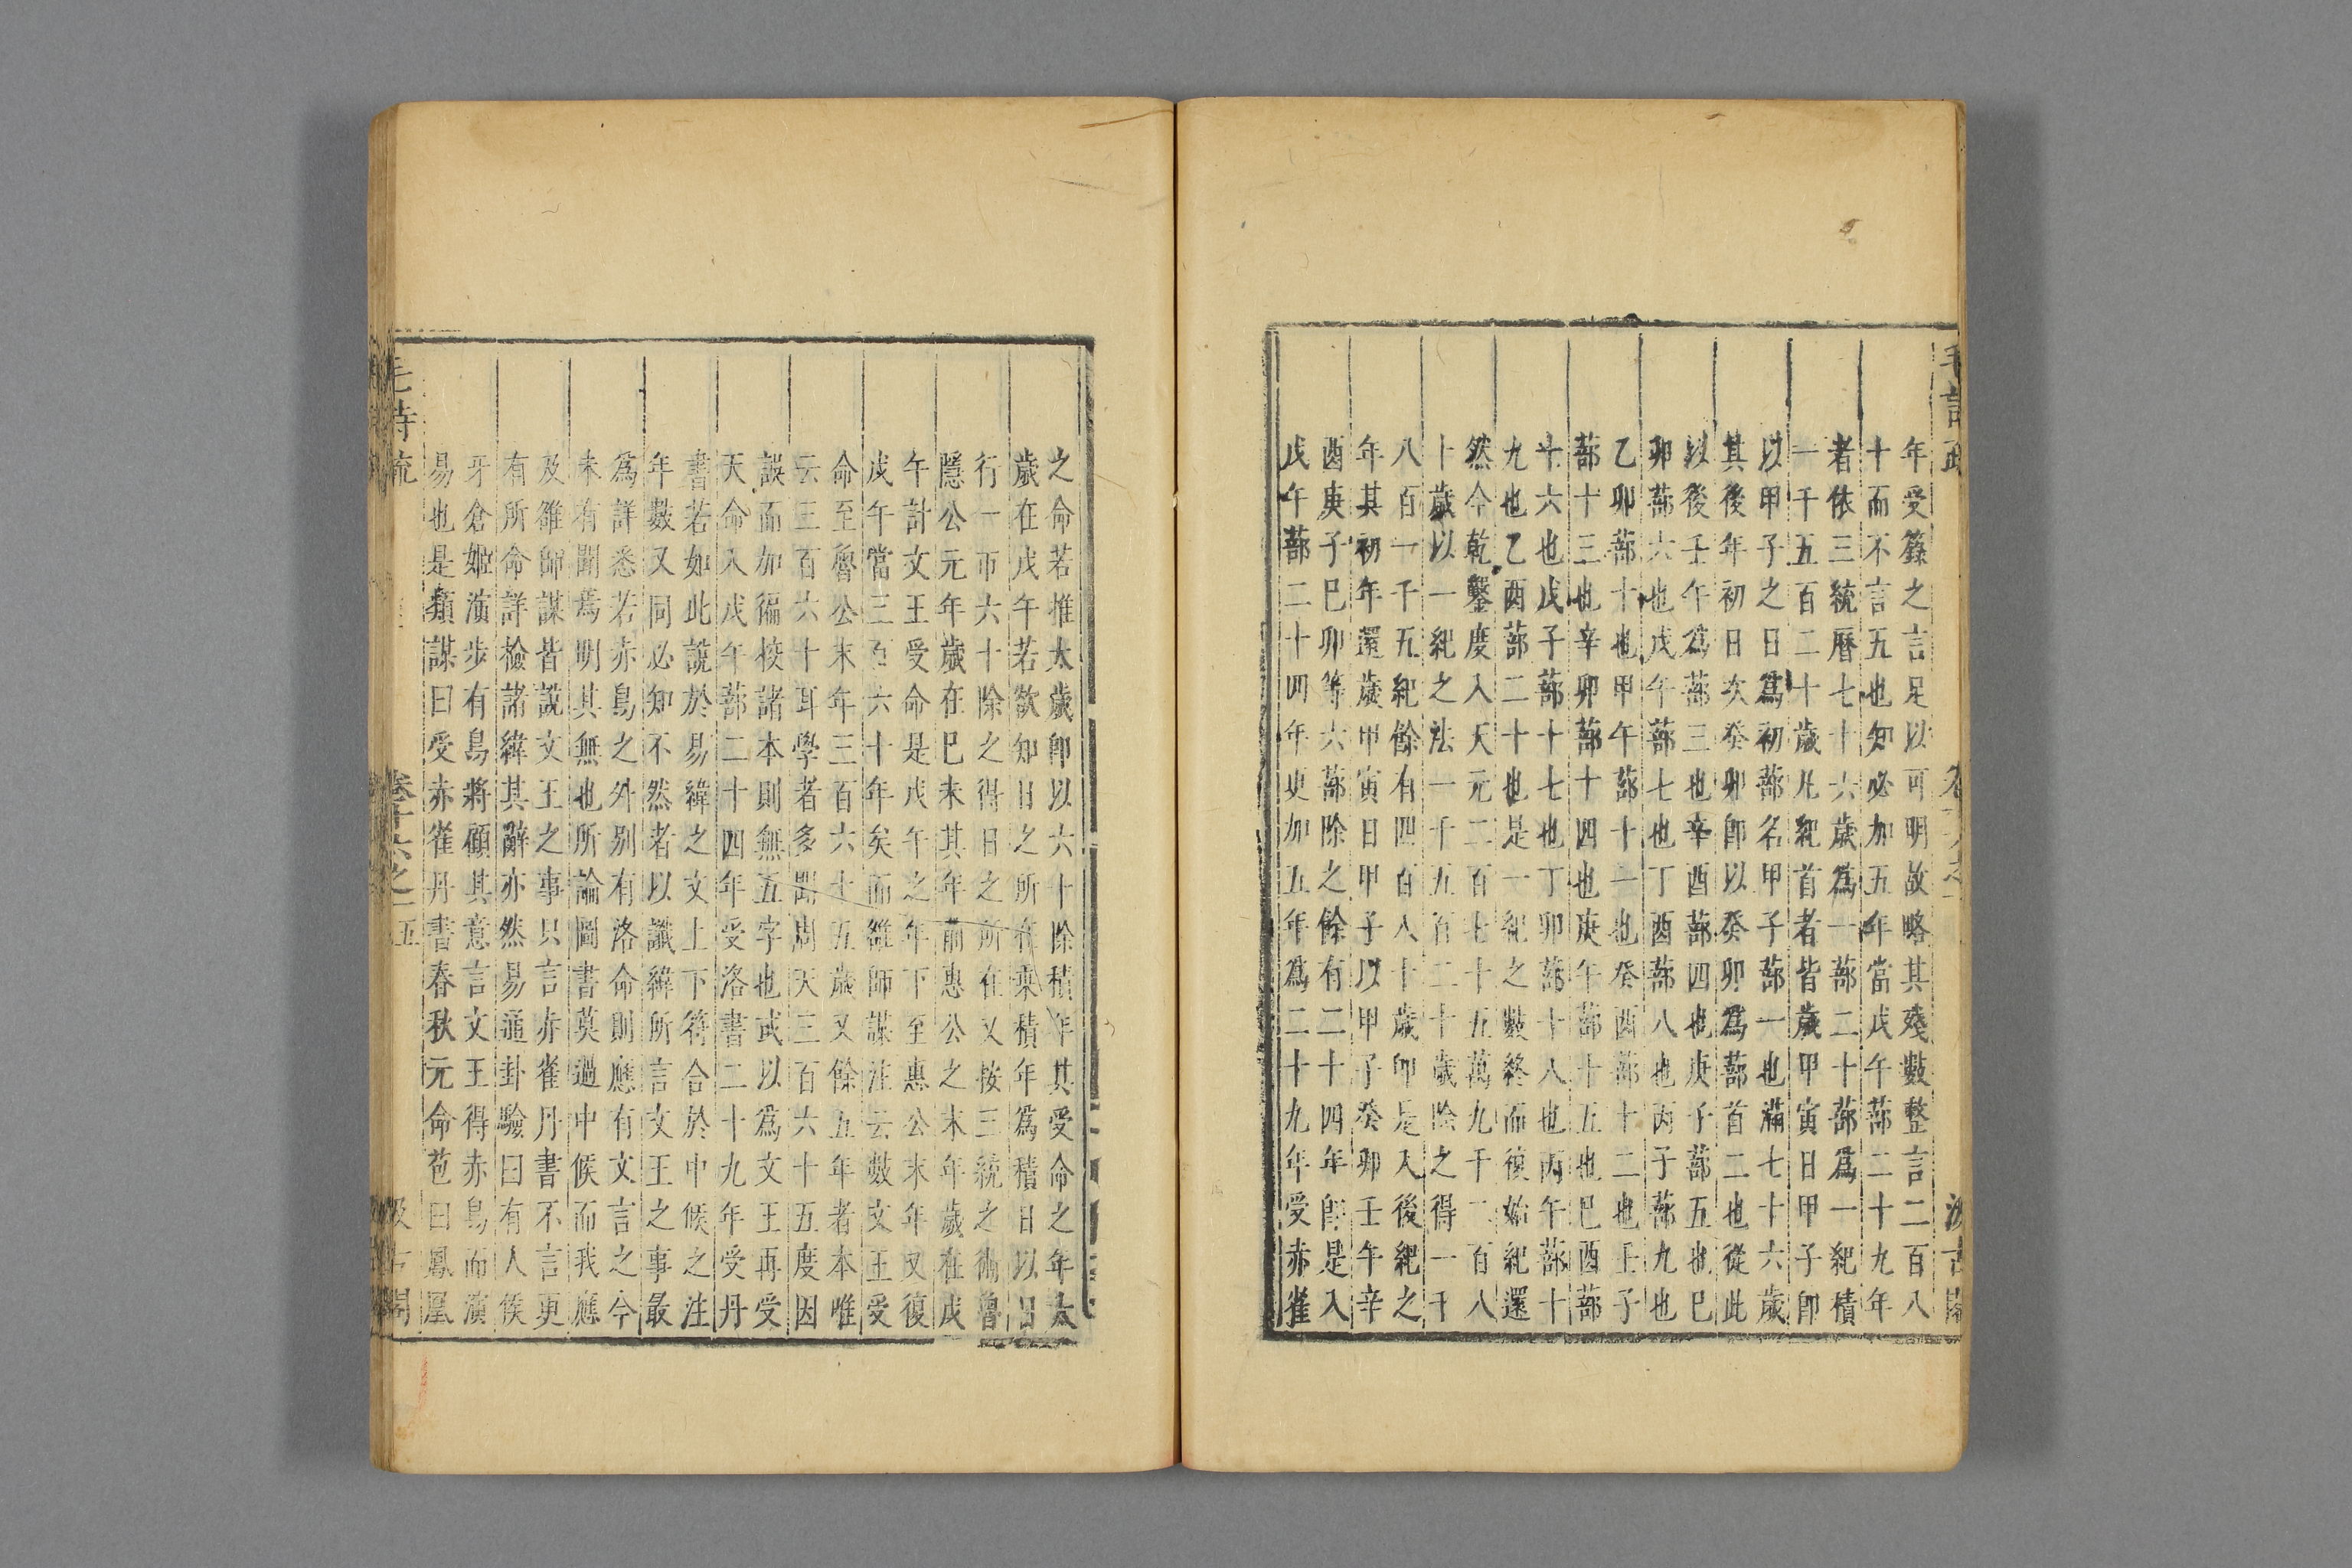 年受籙之言足以可明故略其殘數整言二百八
十而不言五也知必加五年當戊午蔀二十九年
者依三統曆七十六歲爲一蔀二十蔀爲一紀積
一千五百二十歲凡紀首者皆歲甲寅日甲子卽
以甲子之日爲初蔀名甲子蔀一也滿七十六歲
其後年初日次癸卯卽以癸卯爲蔀首二也從此
以後壬午爲蔀三也辛酉蔀四也庚子蔀五也巳
卯蔀六也戊午蔀七也丁酉蔀八也丙子蔀九也
乙卯蔀十也甲午蔀十一也癸酉蔀十二也壬子
蔀十三也辛卯蔀十四也庚午蔀十五也巳酉蔀
十六也戊子蔀十七也丁卯蔀十八也丙午蔀十
九也乙酉蔀二十也是一紀之數終而復始紀還
然今乾鑿度入天元二百七十五萬九千二百八
十歲以一紀之法一千五百二十歲除之得一千
八百一十五紀餘有四百八十歲卽是入後紀之
年其初年還歲甲寅日甲子以甲子癸卯壬午辛
酉庚子巳卯等六蔀除之餘有二十四年卽是入
戊午蔀二十四年更加五年爲二十九年受赤雀
之命若推太歲卽以六十除積年其受命之年太
歲在戊午若欲知日之所在乘積年爲積日以日
行一帀六十除之得日之所在又按三統之術魯
隱公元年歲在巳未其年前惠公之末年歲在戊
午計文王受命是戊午之年下至惠公末年又復
戊午當三百六十年矣而雒師謀注云數文王受
命至魯公末年三百六十五歲又餘五年者本唯
云三百六十耳學者多聞周天三百六十五度因
誤而加徧校諸本則無五字也或以爲文王再受
天命入戊午蔀二十四年受洛書二十九年受丹
書若如此說於易緯之文上下符合於中候之注
年數又同必知不然者以讖緯所言文王之事最
爲詳悉若赤鳥之外別有洛命則應有文言之今
未有聞焉明其無也所論圖書莫過中候而我應
及雒師謀皆說文王之事只言赤雀丹書不言更
有所命詳檢諸緯其辭亦然易通卦驗曰有人候
牙倉姬演步有鳥將顧其意言文王得赤鳥而演
易也是類謀曰受赤雀丹書春秋元命苞曰鳳凰